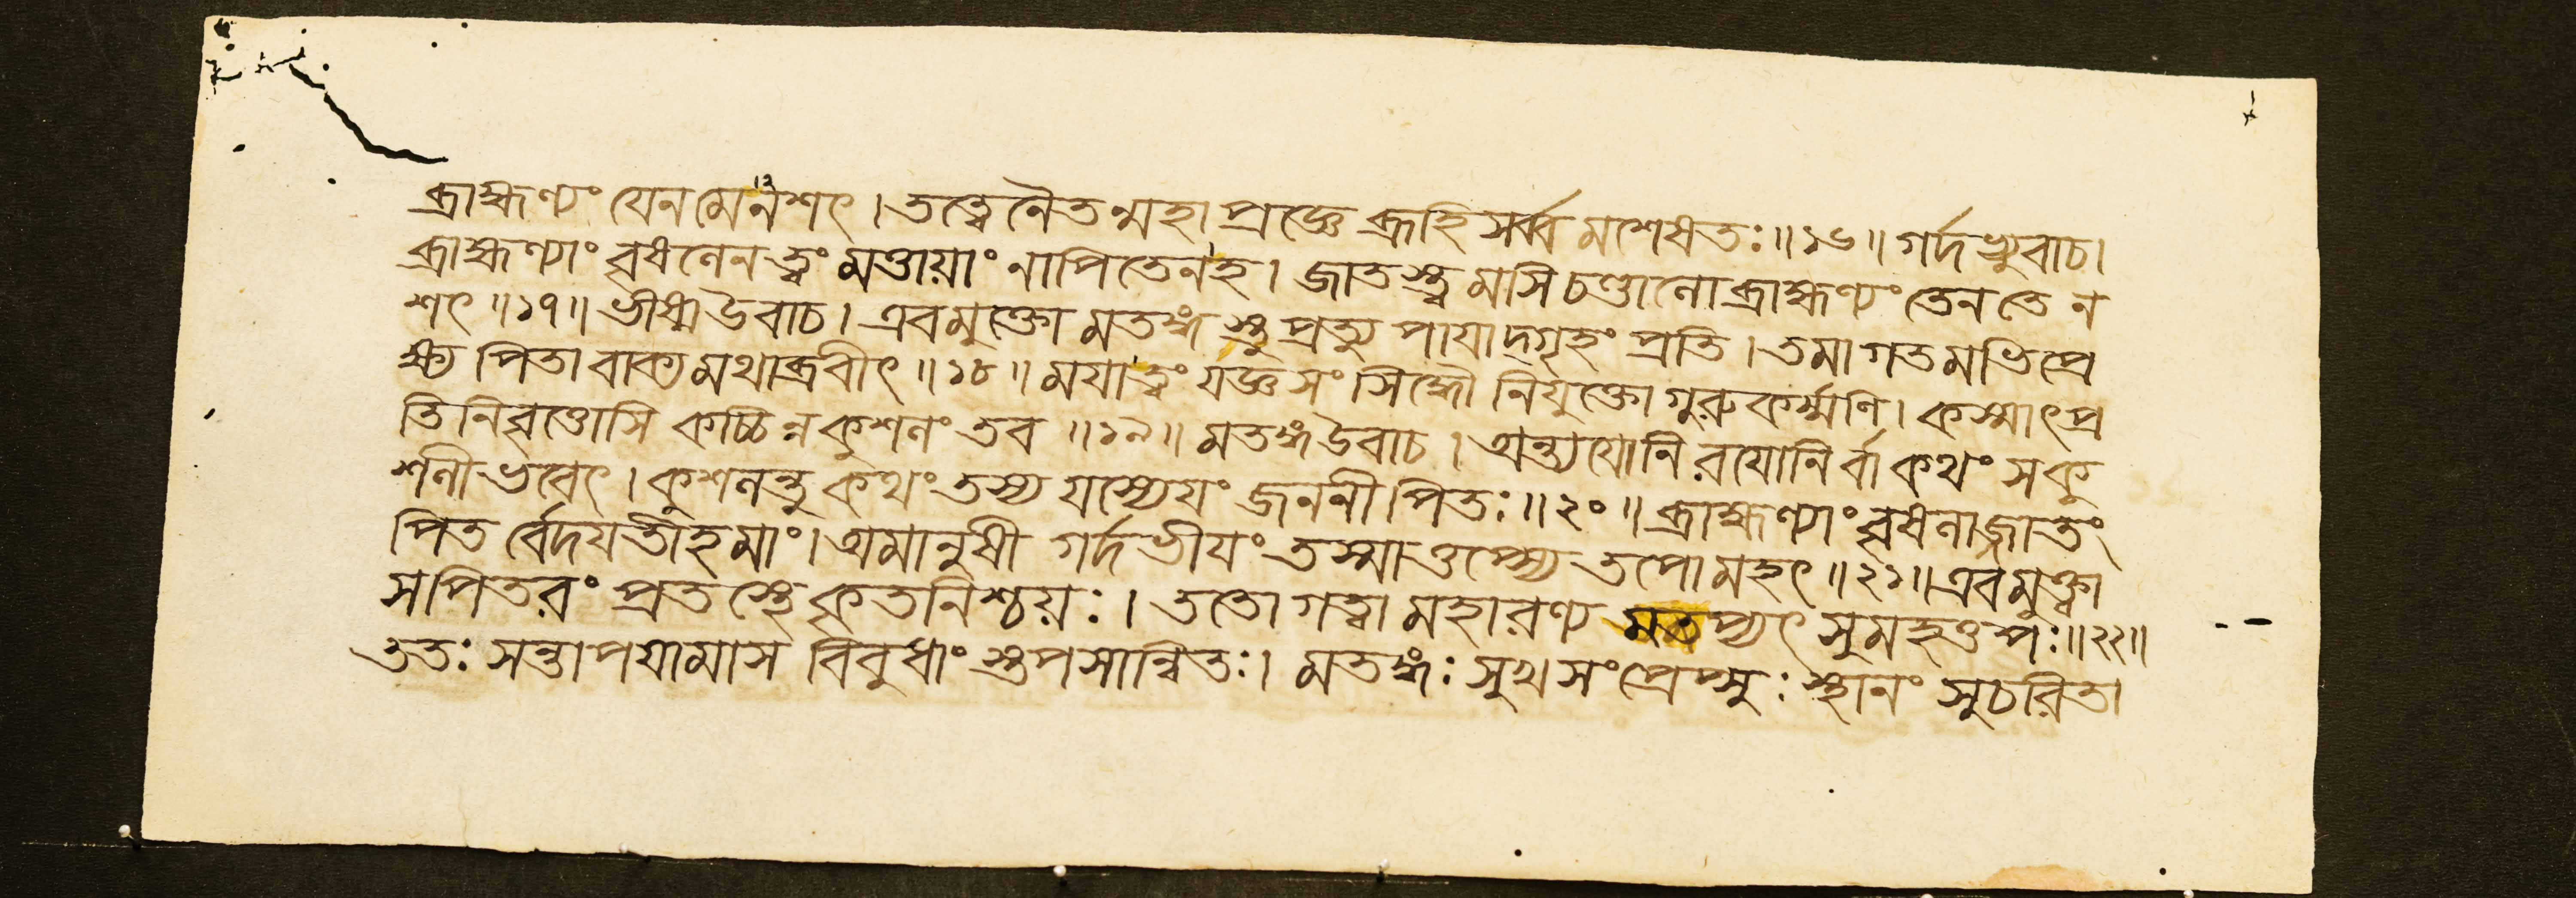 ব্রাহ্মণ্যং যেন মেনশৎ । তত্ত্বেনৈতন্মহাপ্রজ্ঞে ব্রূহি সর্ব্বমশেষতঃ ॥ ১৬ ॥ গর্দভ্যুবাচ ।
ব্রাহ্মণ্যাং বৃষলেন ত্বং মত্তায়াং নাপিতেন হ । জাতস্ত্বমসি চণ্ডালো ব্রাহ্মণ্যং তেন তে ন
শৎ ॥ ১৭ ॥ ভীষ্ম উবাচ । এবমুক্তো মতঙ্গস্তু প্রত্যুপাযাদ্গৃহং প্রতি । তমাগতমভিপ্রে
ক্ষ্য পিতা বাক্যমথাব্রবীৎ ॥ ১৮ ॥ ময়া ত্বং যজ্ঞসংসিদ্ধৌ নিযুক্তো গুরুকর্ম্মণি । কস্মাৎ প্র
তিনিবৃত্তোসি কচ্চিন্ন কুশলং তব ॥ ১৯ ॥ মতঙ্গ উবাচ । অন্ত্যযোনিরযোনির্বা কথং স কু
শলী ভবেৎ । কুশলন্তু কথং তস্য যস্যেয়ং জননী পিতঃ ॥ ২০ ॥ ব্রাহ্মণ্যাং বৃষলাজ্জাতং
পিতর্বেদয়তীহ মাং । অমানুষী গর্দভীয়ং তস্মাত্তপ্স্যে তপো মহৎ ॥ ২১ ॥ এবমুক্ত্বা
স পিতরং প্রতস্থে কৃতনিশ্চয়ঃ । ততো গত্বা মহারণ্যমতপ্যৎ সুমহত্তপঃ ॥ ২২ ॥
ততঃ সন্তাপয়ামাস বিবুধাংস্তপসান্বিতঃ । মতঙ্গঃ সুখসংপ্রেপ্সুঃ স্থানং সুচরিতা